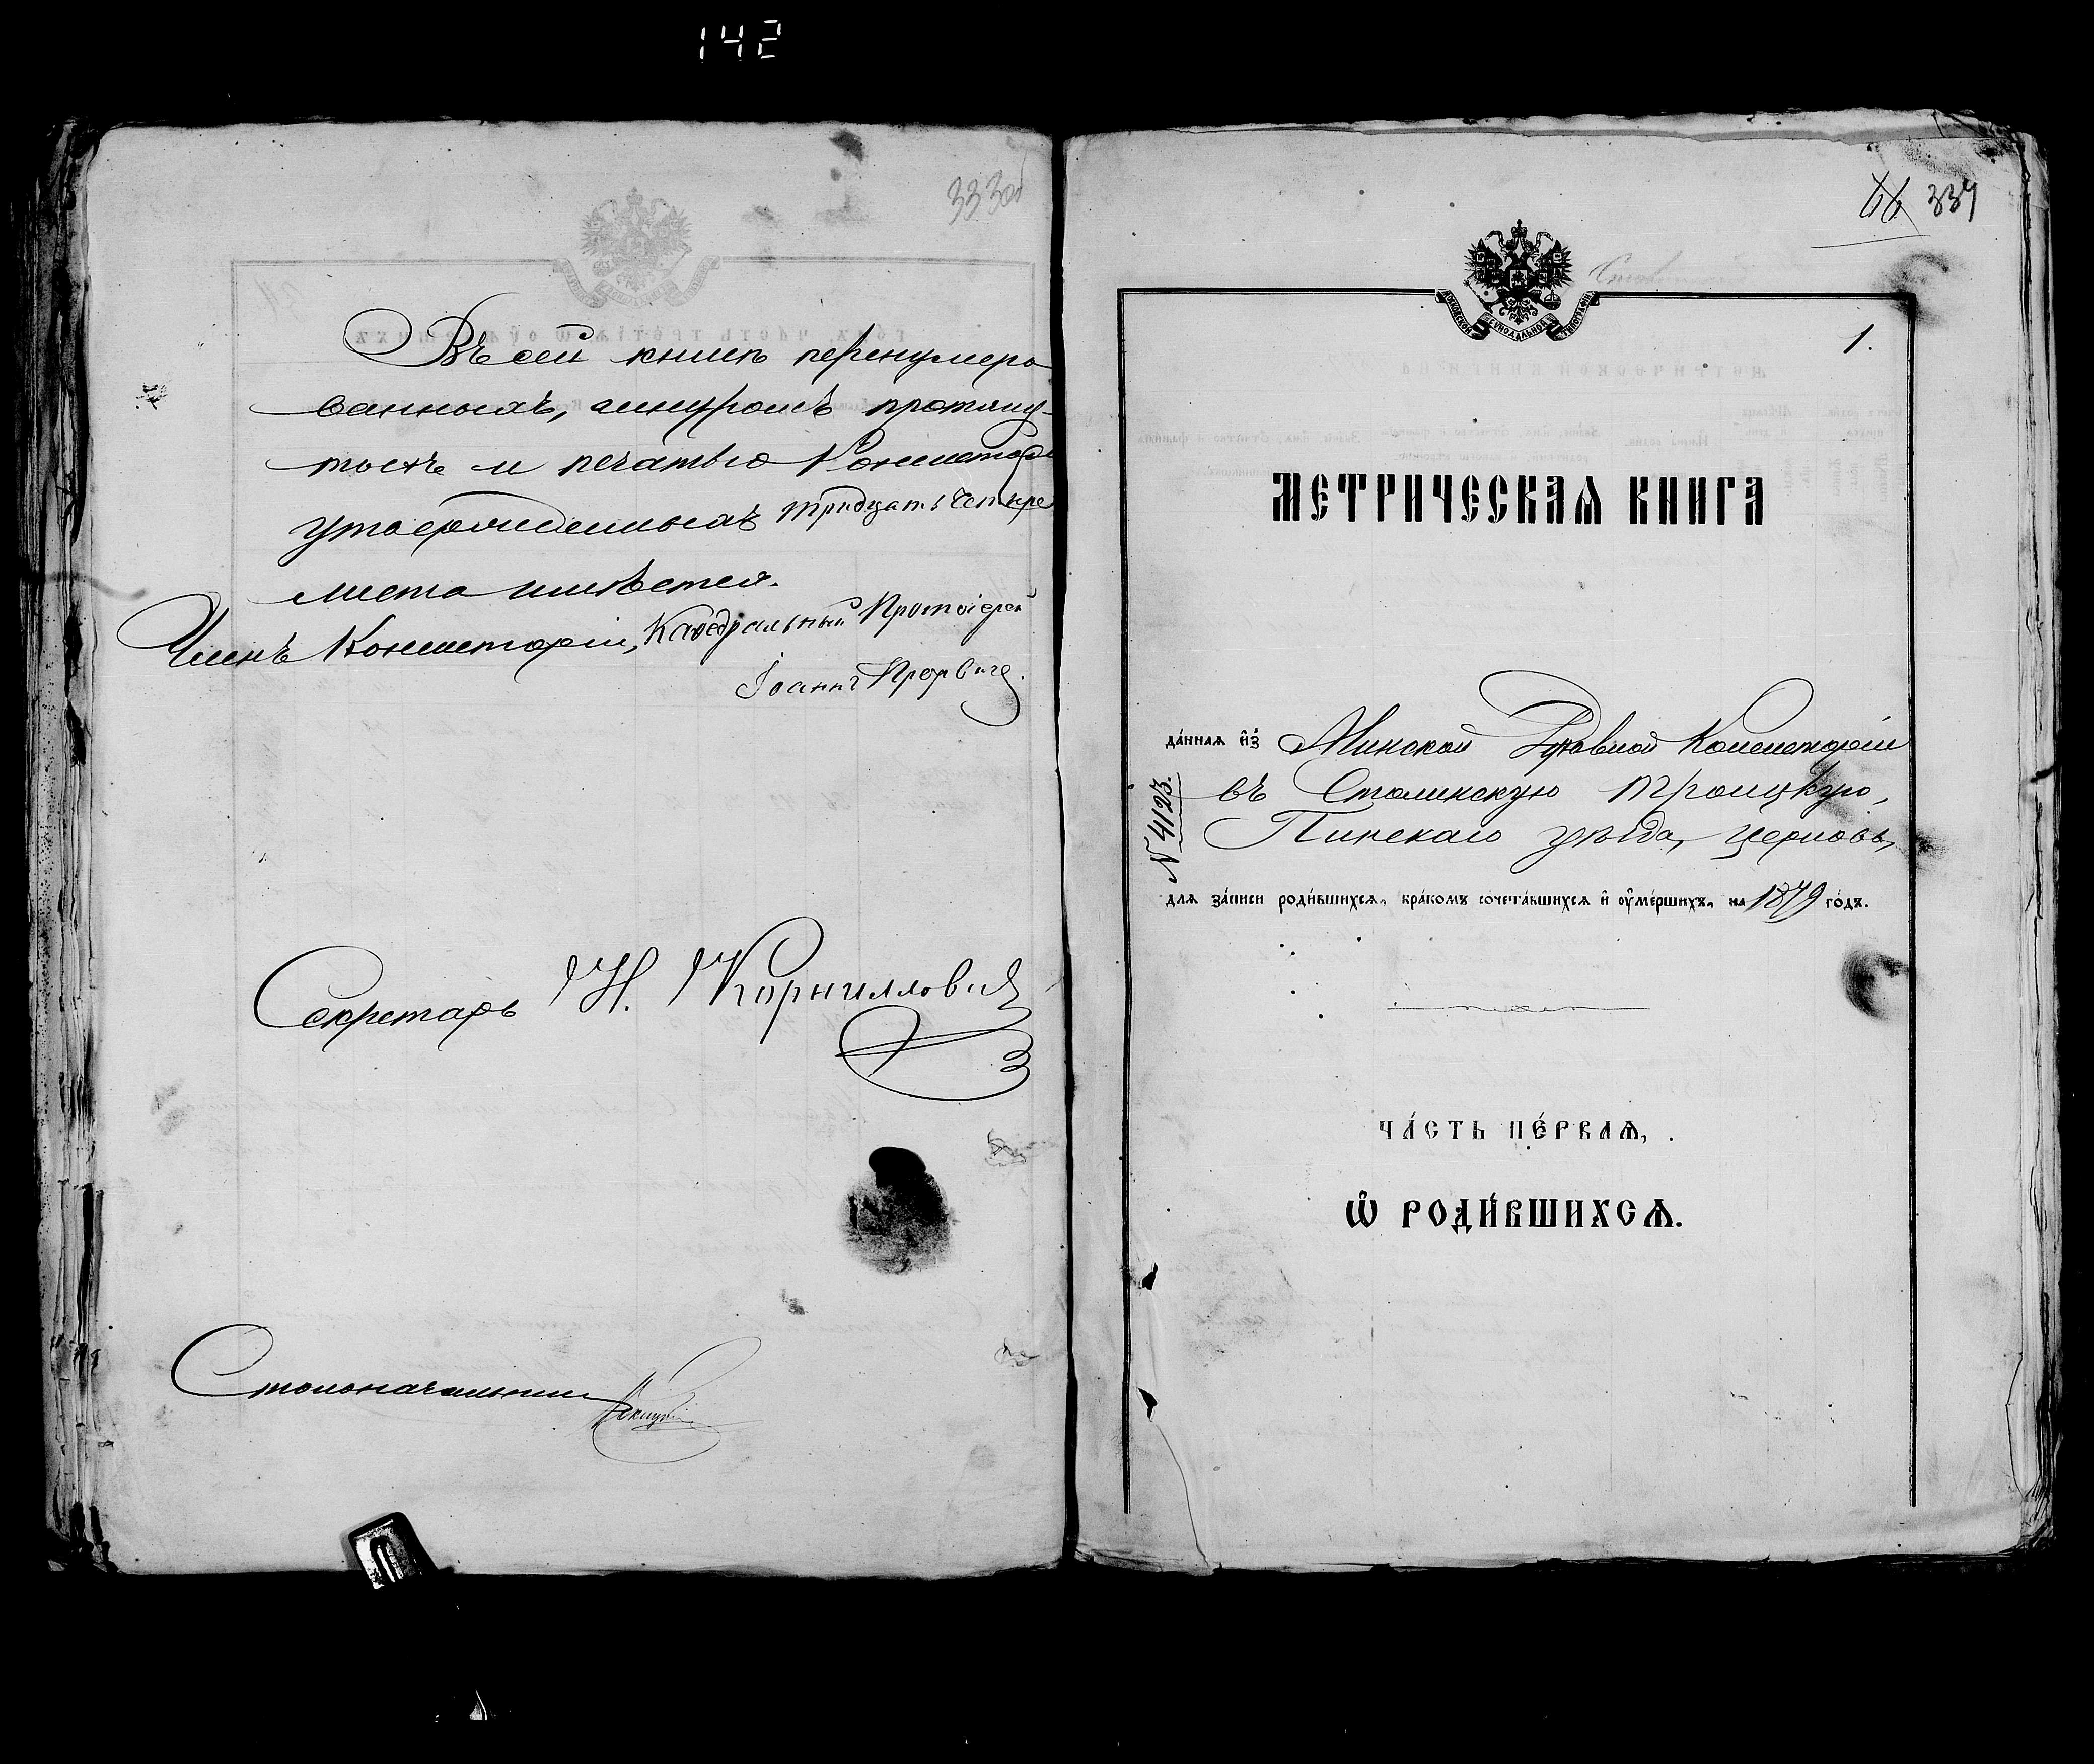 142
333об
Въ сей книгѣ перенумеро
ванныхъ, шнуромъ протяну-
тыхъ и печатью Консисторіи
утвержденныхъ тридцать четыре
листа имѣется.
Членъ Консисторіи, Каѳедральный Протоіерей
Іоаннъ
Секретарь Н. Корниллович
Столоначальник
66 334
МОСКОВСКОЙ СѴНОДАЛЬНОЙ ТИПОГРАФІИ
1.
МЕТРИЧЕСКАѦ КНИГА
да́ннаѧ и҆з̾ Минской Духовной Консисторіи
въ Столинскую Троицкую,
Пинскаго уѣзда, церковь,
№ 4123.
длѧ за́писи роди́вшихсѧ, бра́комъ сочета́вшихсѧ и҆ ᲂу҆ме́ршихъ, на 1879 го́дъ.
ЧА́СТЬ ПЕ́РВАѦ,
Ѡ҆ РОДИ́ВШИХСѦ.